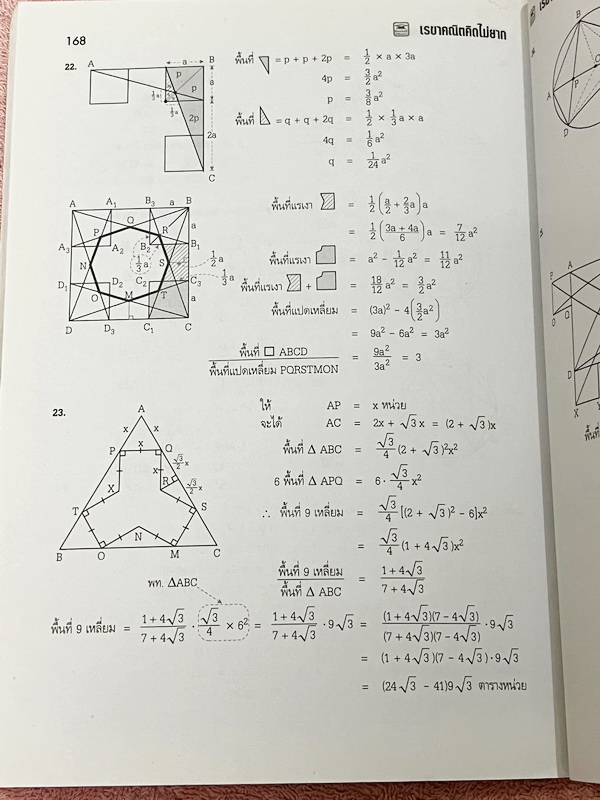 168
เรขาคณิตคิดไม่ยาก
22.
A a B
p p a
1/3 a 1/3 a 2p 2a
C
พื้นที่ = p + p + 2p = 1/2 × a × 3a
4p = 3/2 a²
p = 3/8 a²
พื้นที่ = q + q + 2q = 1/2 × 1/3 a × a
4q = 1/6 a²
q = 1/24 a²
A A₁ B₃ a B
P Q R a
A₃ A₂ B₂ B₁
N 1/3 a S 1/2 a
D₁ D₂ C₂ C₃ 1/3 a
O M T a
D D₃ C₁ C
พื้นที่แรเงา = 1/2 (a/2 + 2/3 a) a
= 1/2 ((3a + 4a)/6) a = 7/12 a²
พื้นที่แรเงา = a² − 1/12 a² = 11/12 a²
พื้นที่แรเงา + = 18/12 a² = 3/2 a²
พื้นที่แปดเหลี่ยม = (3a)² − 4(3/2 a²)
= 9a² − 6a² = 3a²
พื้นที่ □ ABCD / พื้นที่แปดเหลี่ยม PQRSTMON = 9a²/3a² = 3
23.
A
x x
P x Q
√3/2 x
X R √3/2 x
T S
N
B O M C
ให้ AP = x หน่วย
จะได้ AC = 2x + √3 x = (2 + √3)x
พื้นที่ Δ ABC = √3/4 (2 + √3)²x²
6 พื้นที่ Δ APQ = 6 · √3/4 x²
∴ พื้นที่ 9 เหลี่ยม = √3/4 [(2 + √3)² − 6]x²
= √3/4 (1 + 4√3)x²
พื้นที่ 9 เหลี่ยม / พื้นที่ Δ ABC = (1 + 4√3)/(7 + 4√3)
พท. ΔABC
พื้นที่ 9 เหลี่ยม = (1 + 4√3)/(7 + 4√3) · √3/4 × 6² = (1 + 4√3)/(7 + 4√3) · 9√3 = (1 + 4√3)(7 − 4√3)/(7 + 4√3)(7 − 4√3) · 9√3
= (1 + 4√3)(7 − 4√3) · 9√3
= (24√3 − 41)9√3 ตารางหน่วย
B
P
A
D
P A
O
D
X Y